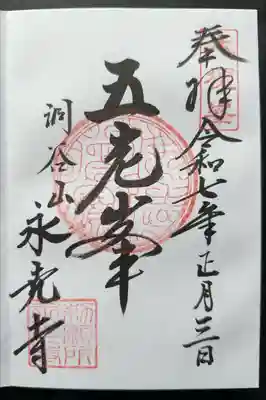 奉拝 令和七年正月三日
五老峯
洞谷山 永光寺